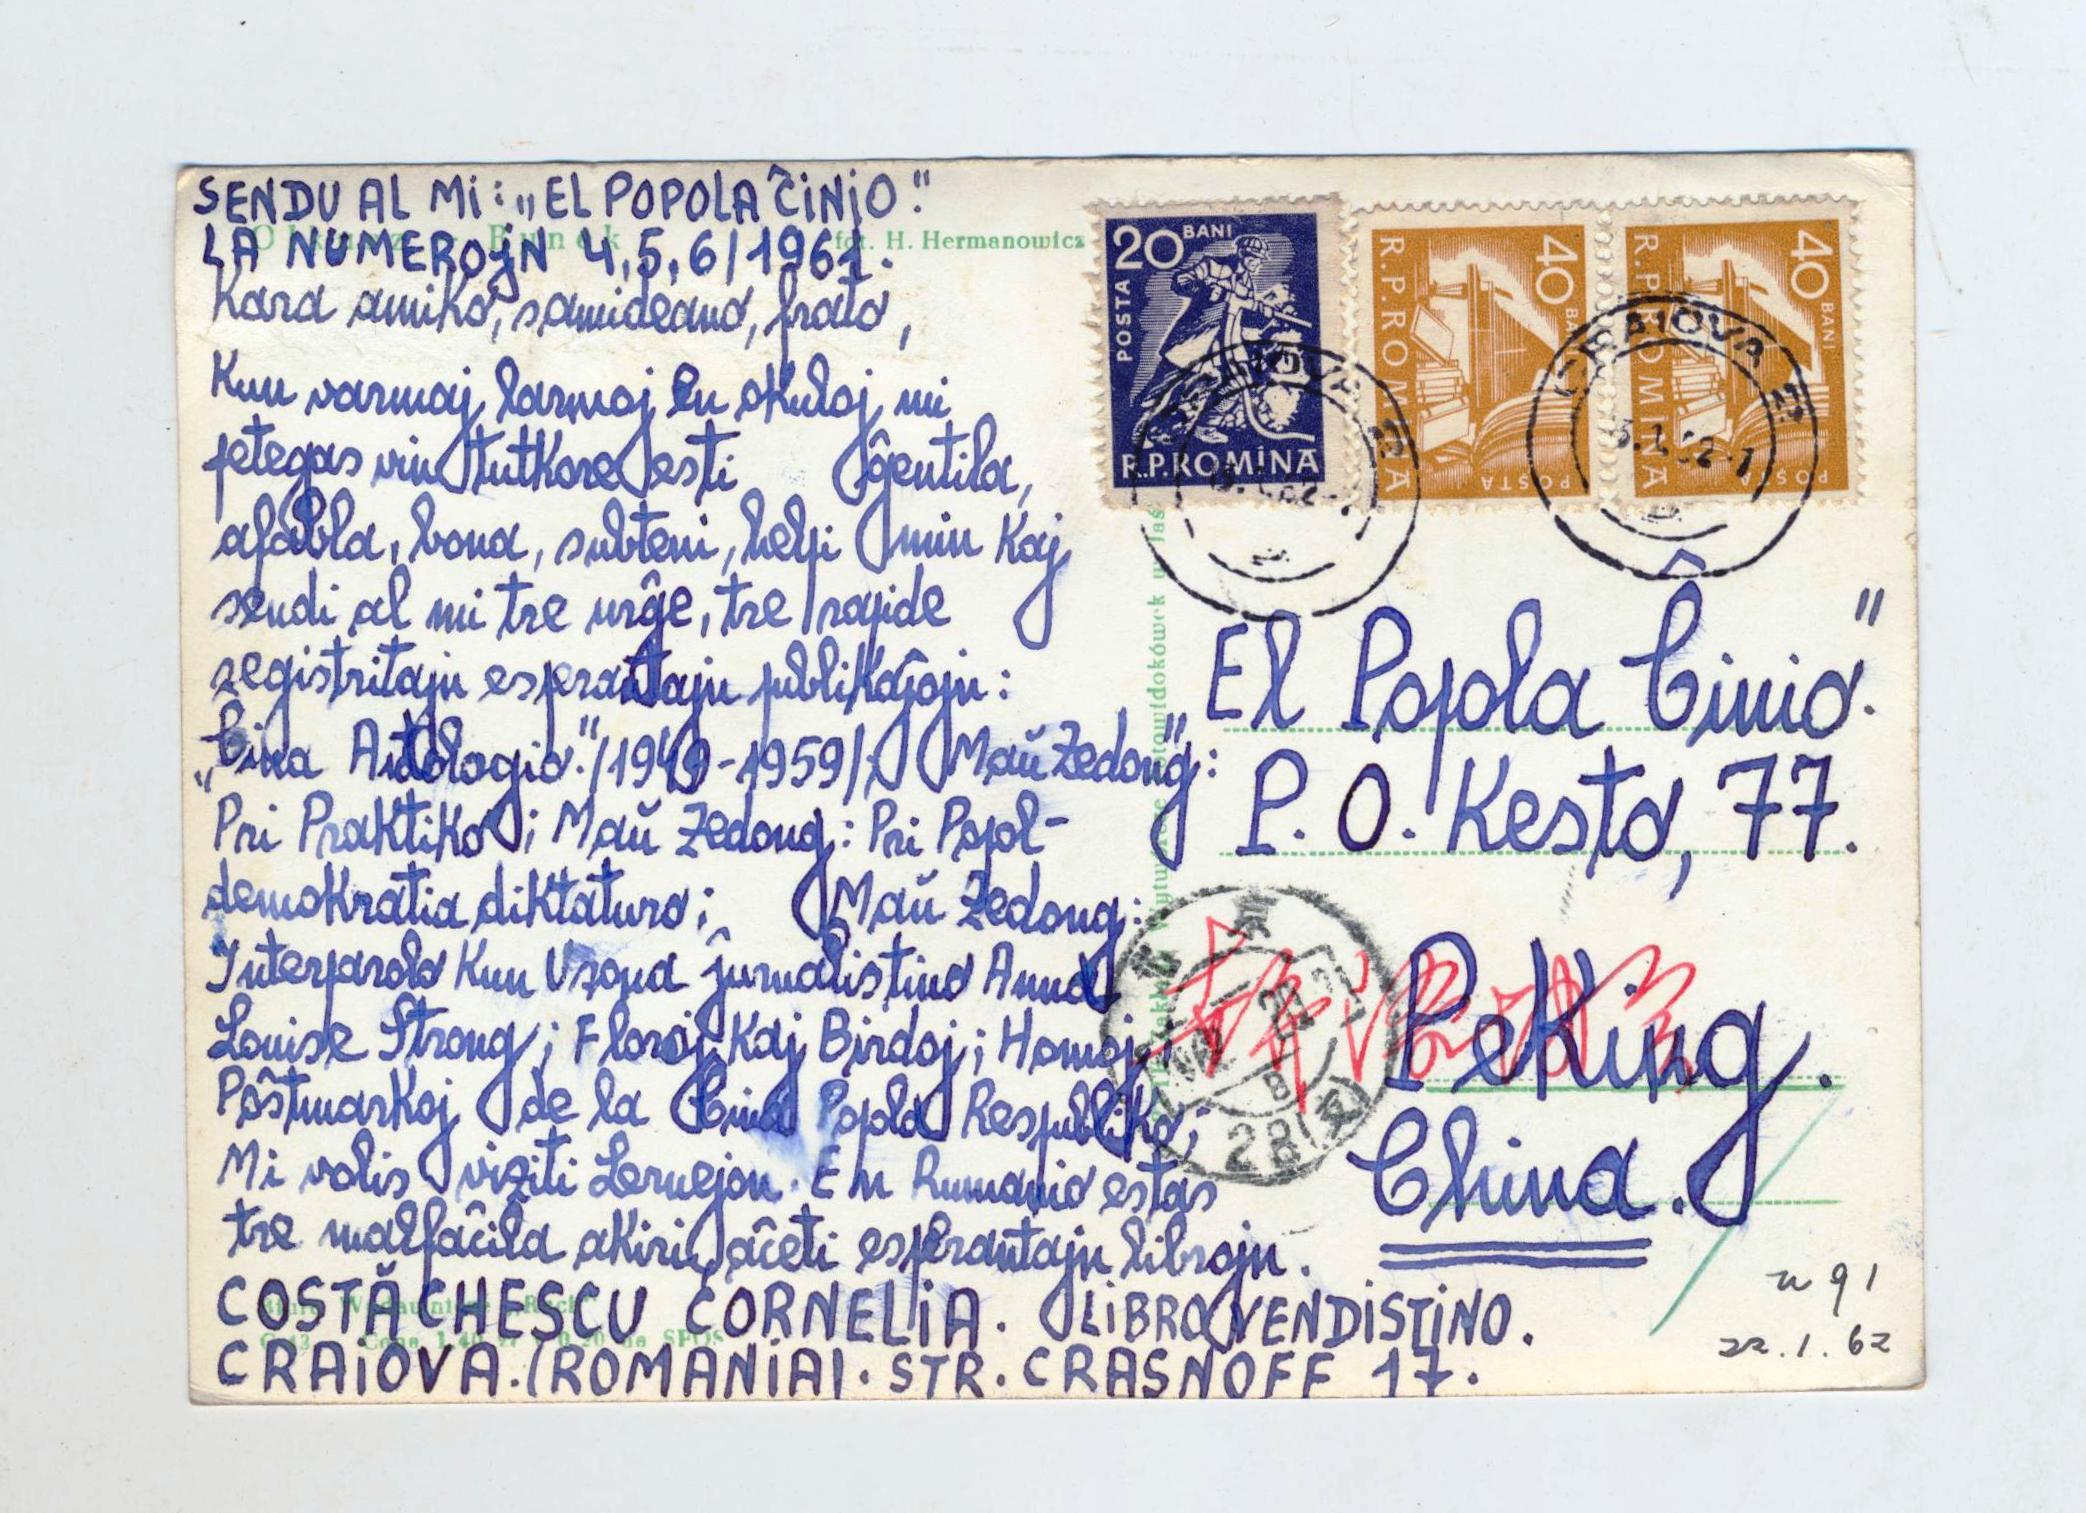 SENDU AL Mi: „EL POPOLA ĈiNiO."
LA NUMEROjN 4, 5, 6/1961.
Kara amiko, samideano, frato,
Kun varmaj larmoj en okuloj mi
petegas vin tutkore esti ĝentila,
afabla, bona, subteni, helpi min kaj
sendi al mi tre urĝe, tre rapide
registritajn esperantajn publikaĵojn:
„Ĉina Antologio."/1949-1959/; Maŭ Zedong":
Pri Praktiko; Maŭ Zedong: Pri Popol-
demokratia diktaturo; Maŭ Zedong:
Interparolo Kun Usona ĵurnalistino Anna
Louise Strong; Floroj Kaj Birdoj; Homoj;
Poŝtmarkoj de la Ĉina Popola Respubliko;
Mi volis viziti Lernejon. En Rumanio estas
tre malfaĉila akiri, aĉeti esperantajn librojn.
COSTĂCHESCU CORNELiA. LiBROVENDiSTiNO.
CRAiOVA. (ROMANiA). STR. CRASNOFF 17.
fot. H. Hermanowicz
20 BANI
POSTA
R.P.ROMINA
40 BANI
R.P.ROMINA
POSTA
40 BANI
R.P.ROMINA
POSTA
CRAIOVA 2
CRAIOVA 2
El Popola Ĉinio."
P. O. Kesto, 77.
Peking.
China.
28
n 91
22.1.62